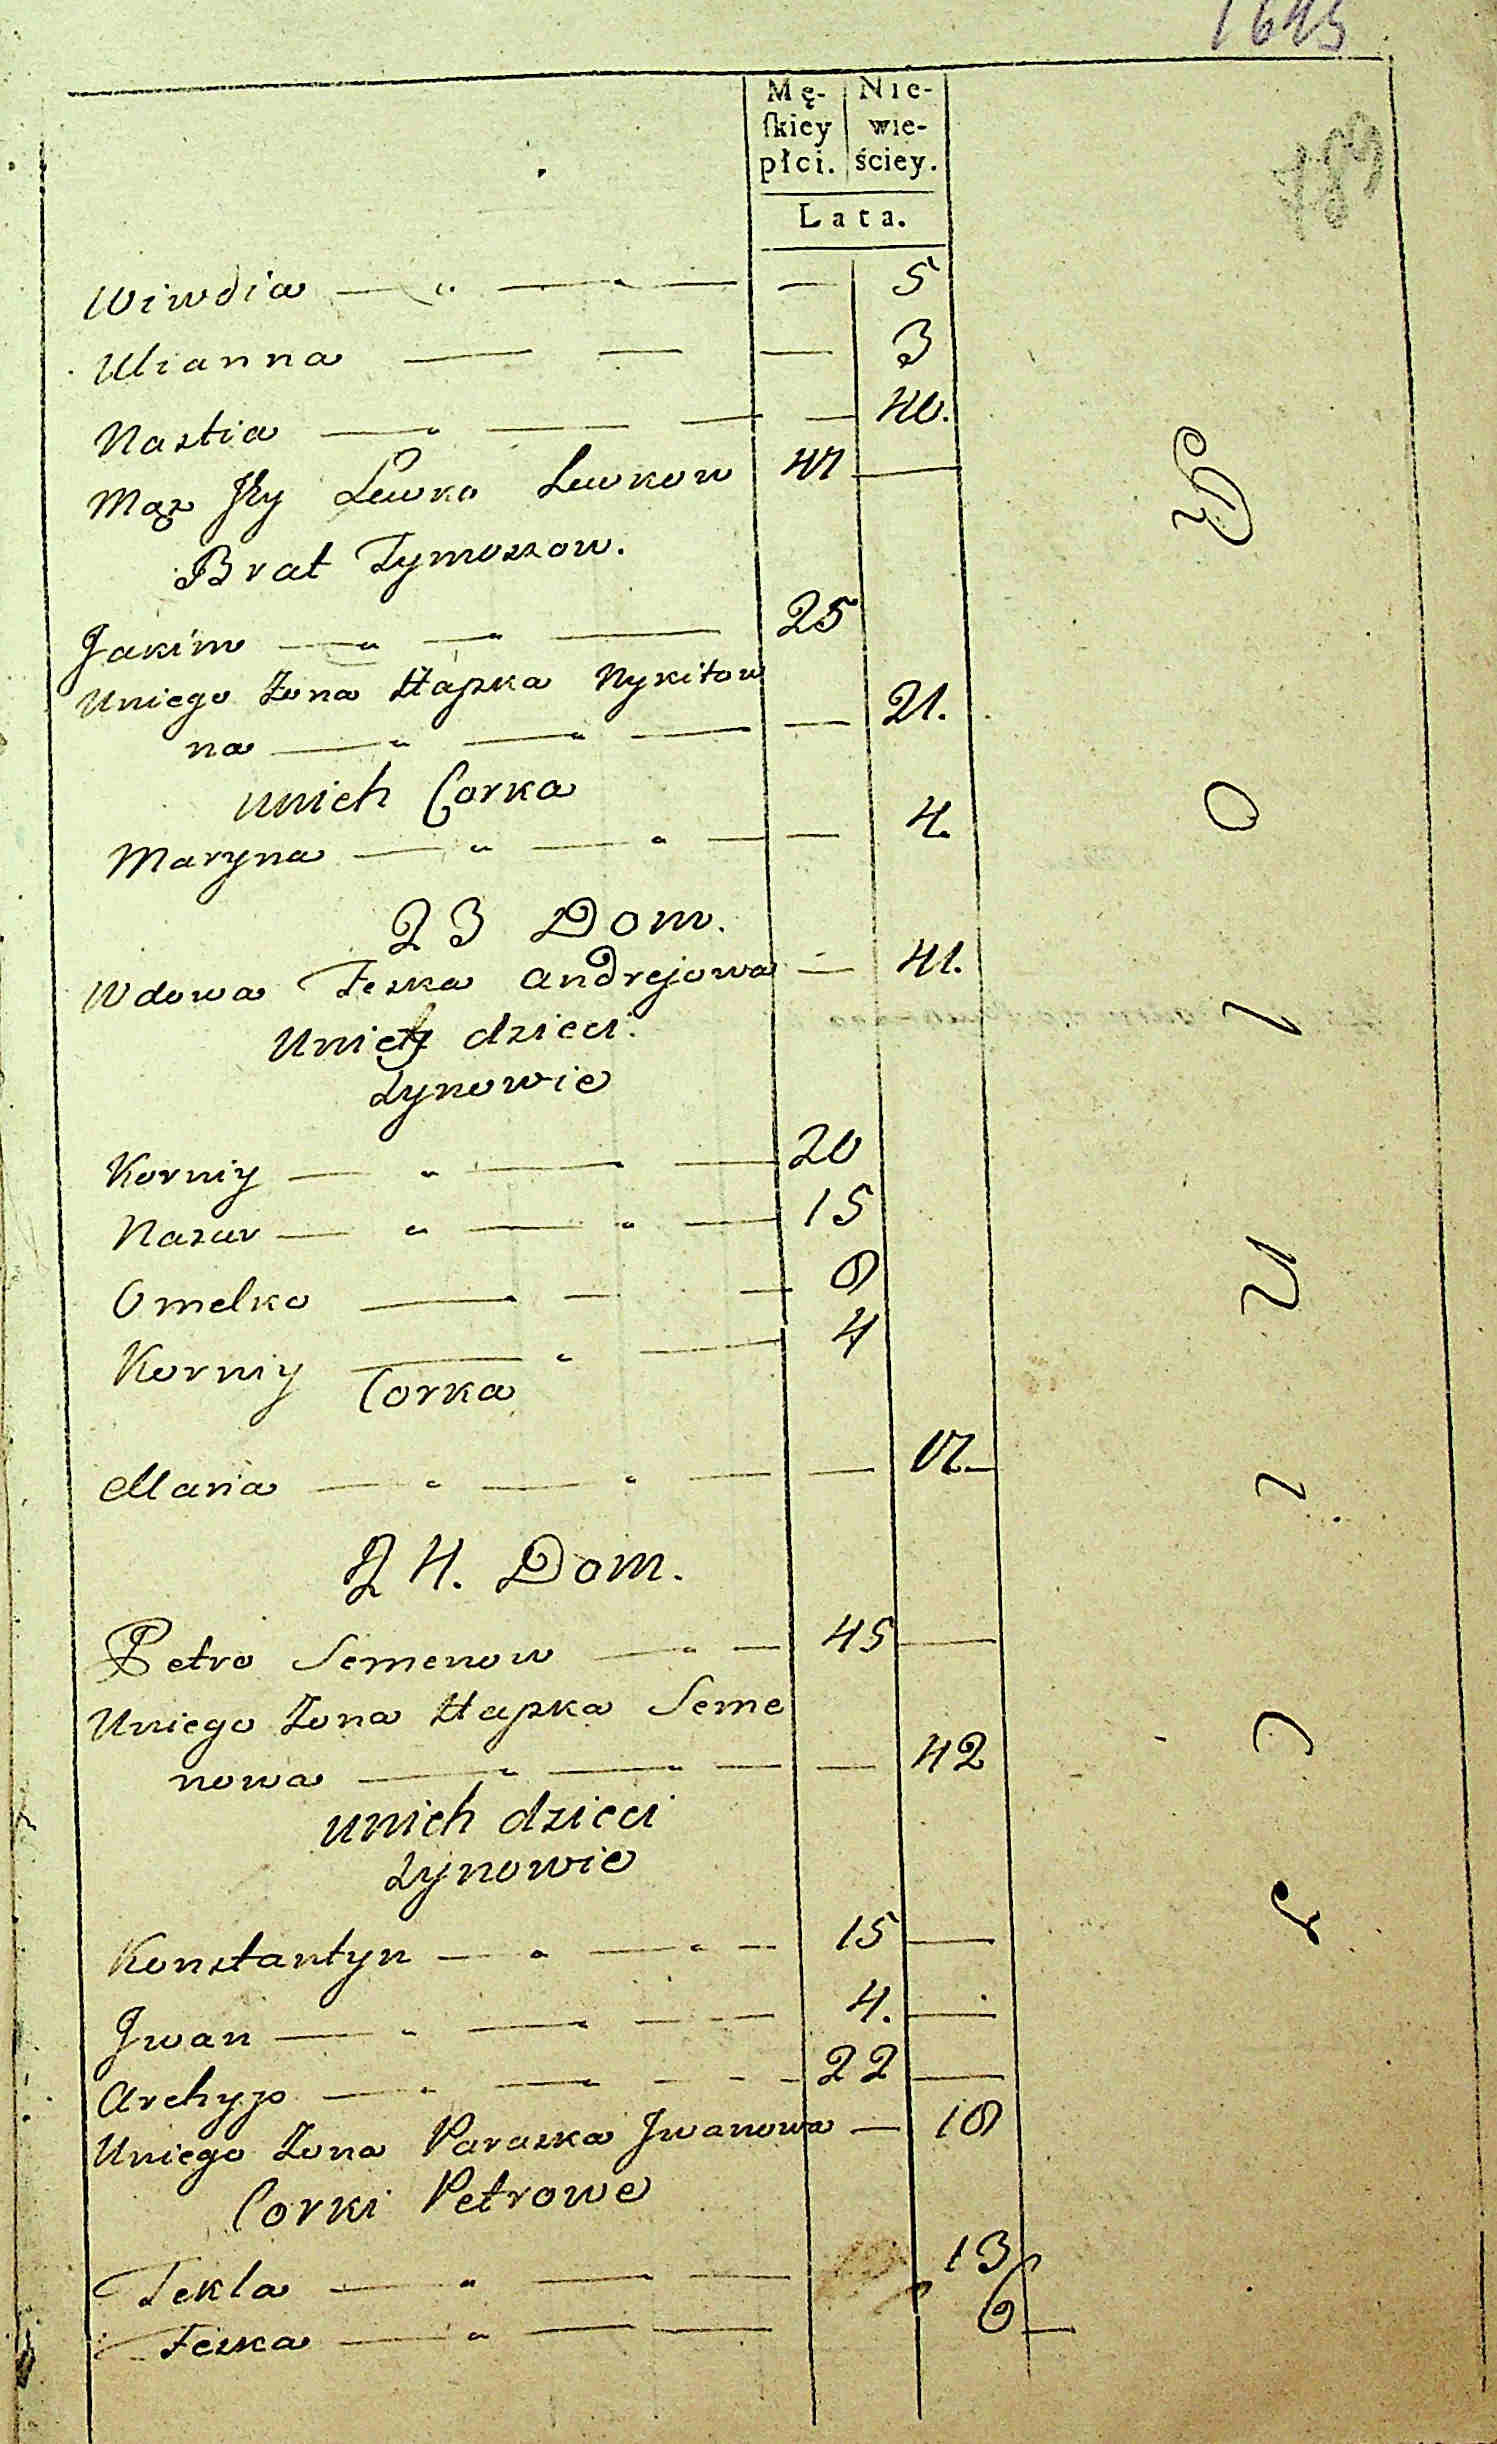 1645
Mę-
ſkiey
płci.
Nie-
wie-
ściey.
Lata.
Wiwdia — — — 5
Ulianna — — — 3
Nastia — — — — 40.
Mąż Jey Lewko Lewkow 47 —
Brat Tymoszow.
Jakim — — — 25
Uniego Żona Hapka Nykitow
na — — — — 21.
unich Corka
Maryna — — — — 4.
23 Dom.
Wdowa Feska Andrejowa — 41.
Unich dzieci.
Synowie
Korniy — — — 20
Nazar — — — 15
Omelko — — — 8
Korniy — — 4
Corka
Maria — — — — 17.
24. Dom.
Petro Semenow — — 45 —
Uniego Żona Hapka Seme
nowa — — — — 42
unich dzieci
Synowie
Konstantyn — — — 15 —
Jwan — — — 4. —
Archyp — — — 22 —
Uniego Żona Paraska Jwanowa — 18
Corki Petrowe
Tekla — — — 13
Feska — — — 6 —